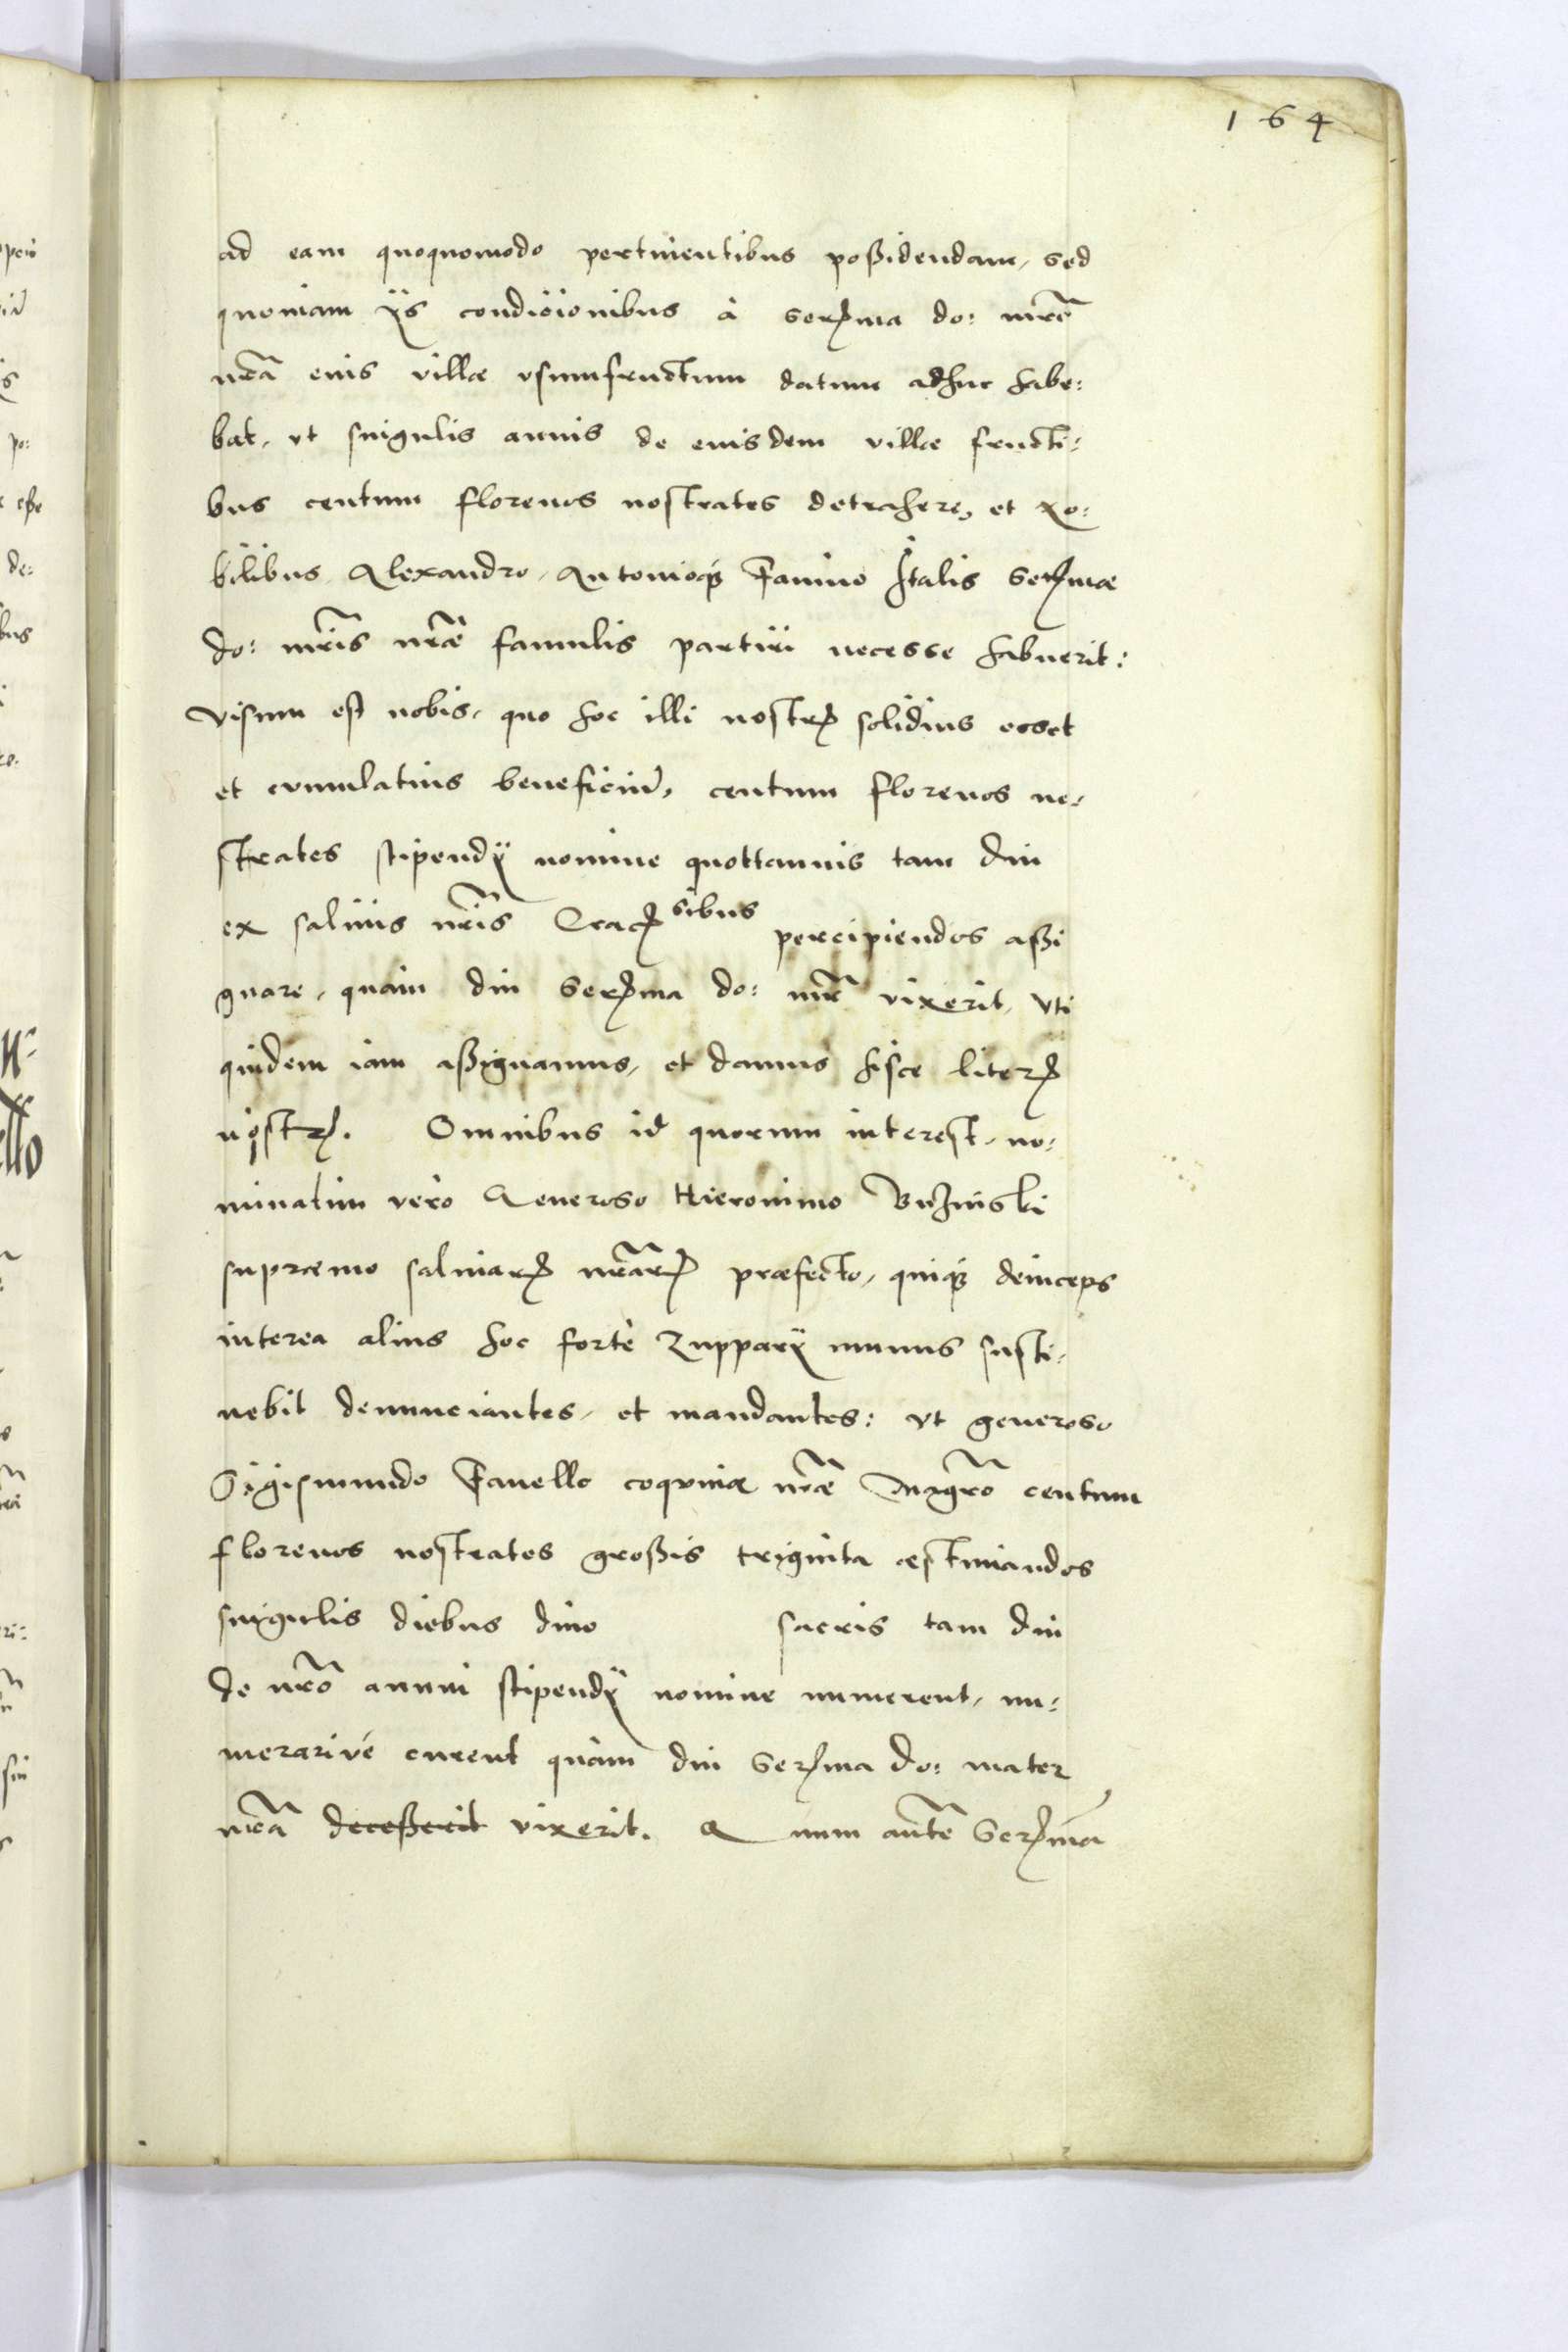 164
ad eam quoquomodo pertinentibus poßidendam, sed
quoniam ijs condicionibus à serᵐma do: mrẽ
nrã eius villæ vsumfructum datum adhuc habe:
bat, vt singulis annis de eiusdem villæ fructi:
bus centum florenos nostrates detrahere, et No:
bilibus Alexandro, Antonioq₃ Fanino Italis Serᵐmæ
do: mr̃is nr̃æ famulis partiri necesse habuerit:
visum est nobis, quo hoc illi nostrꝝ solidius esset
et cumulatius beneficiũ, centum florenos no:
strates stipendij nomine quottannis tam diu
ex salinis nr̃is Cracꝝsibus percipiendos aßi
gnare, quàm diu Serᵐma do: mr̃ vixerit, vti
quidem iam aßignamus, et damus hisce literꝝ
nostrꝝ. Omnibus id quorum interest, no:
minatim verò Generoso Hieronimo Buzinski
supræmo salinarꝝ nr̃arꝝ præfecto, quiq₃ deinceps
interea alius hoc fortè Zupparij munus susti:
nebit denunciantes, et mandantes: vt generoso
Sigismundo Fanello coquinæ nr̃æ Mgr̃o centum
florenos nostrates großis triginta æstimandos
singulis diebus diuo sacris tam diu
de nr̃o annui stipendij nomine numerent, nu:
merariuè curent quàm diu Serᵐma do: mater
nr̃a deceßerit vixerit. Quum aut̃e Serᵐma